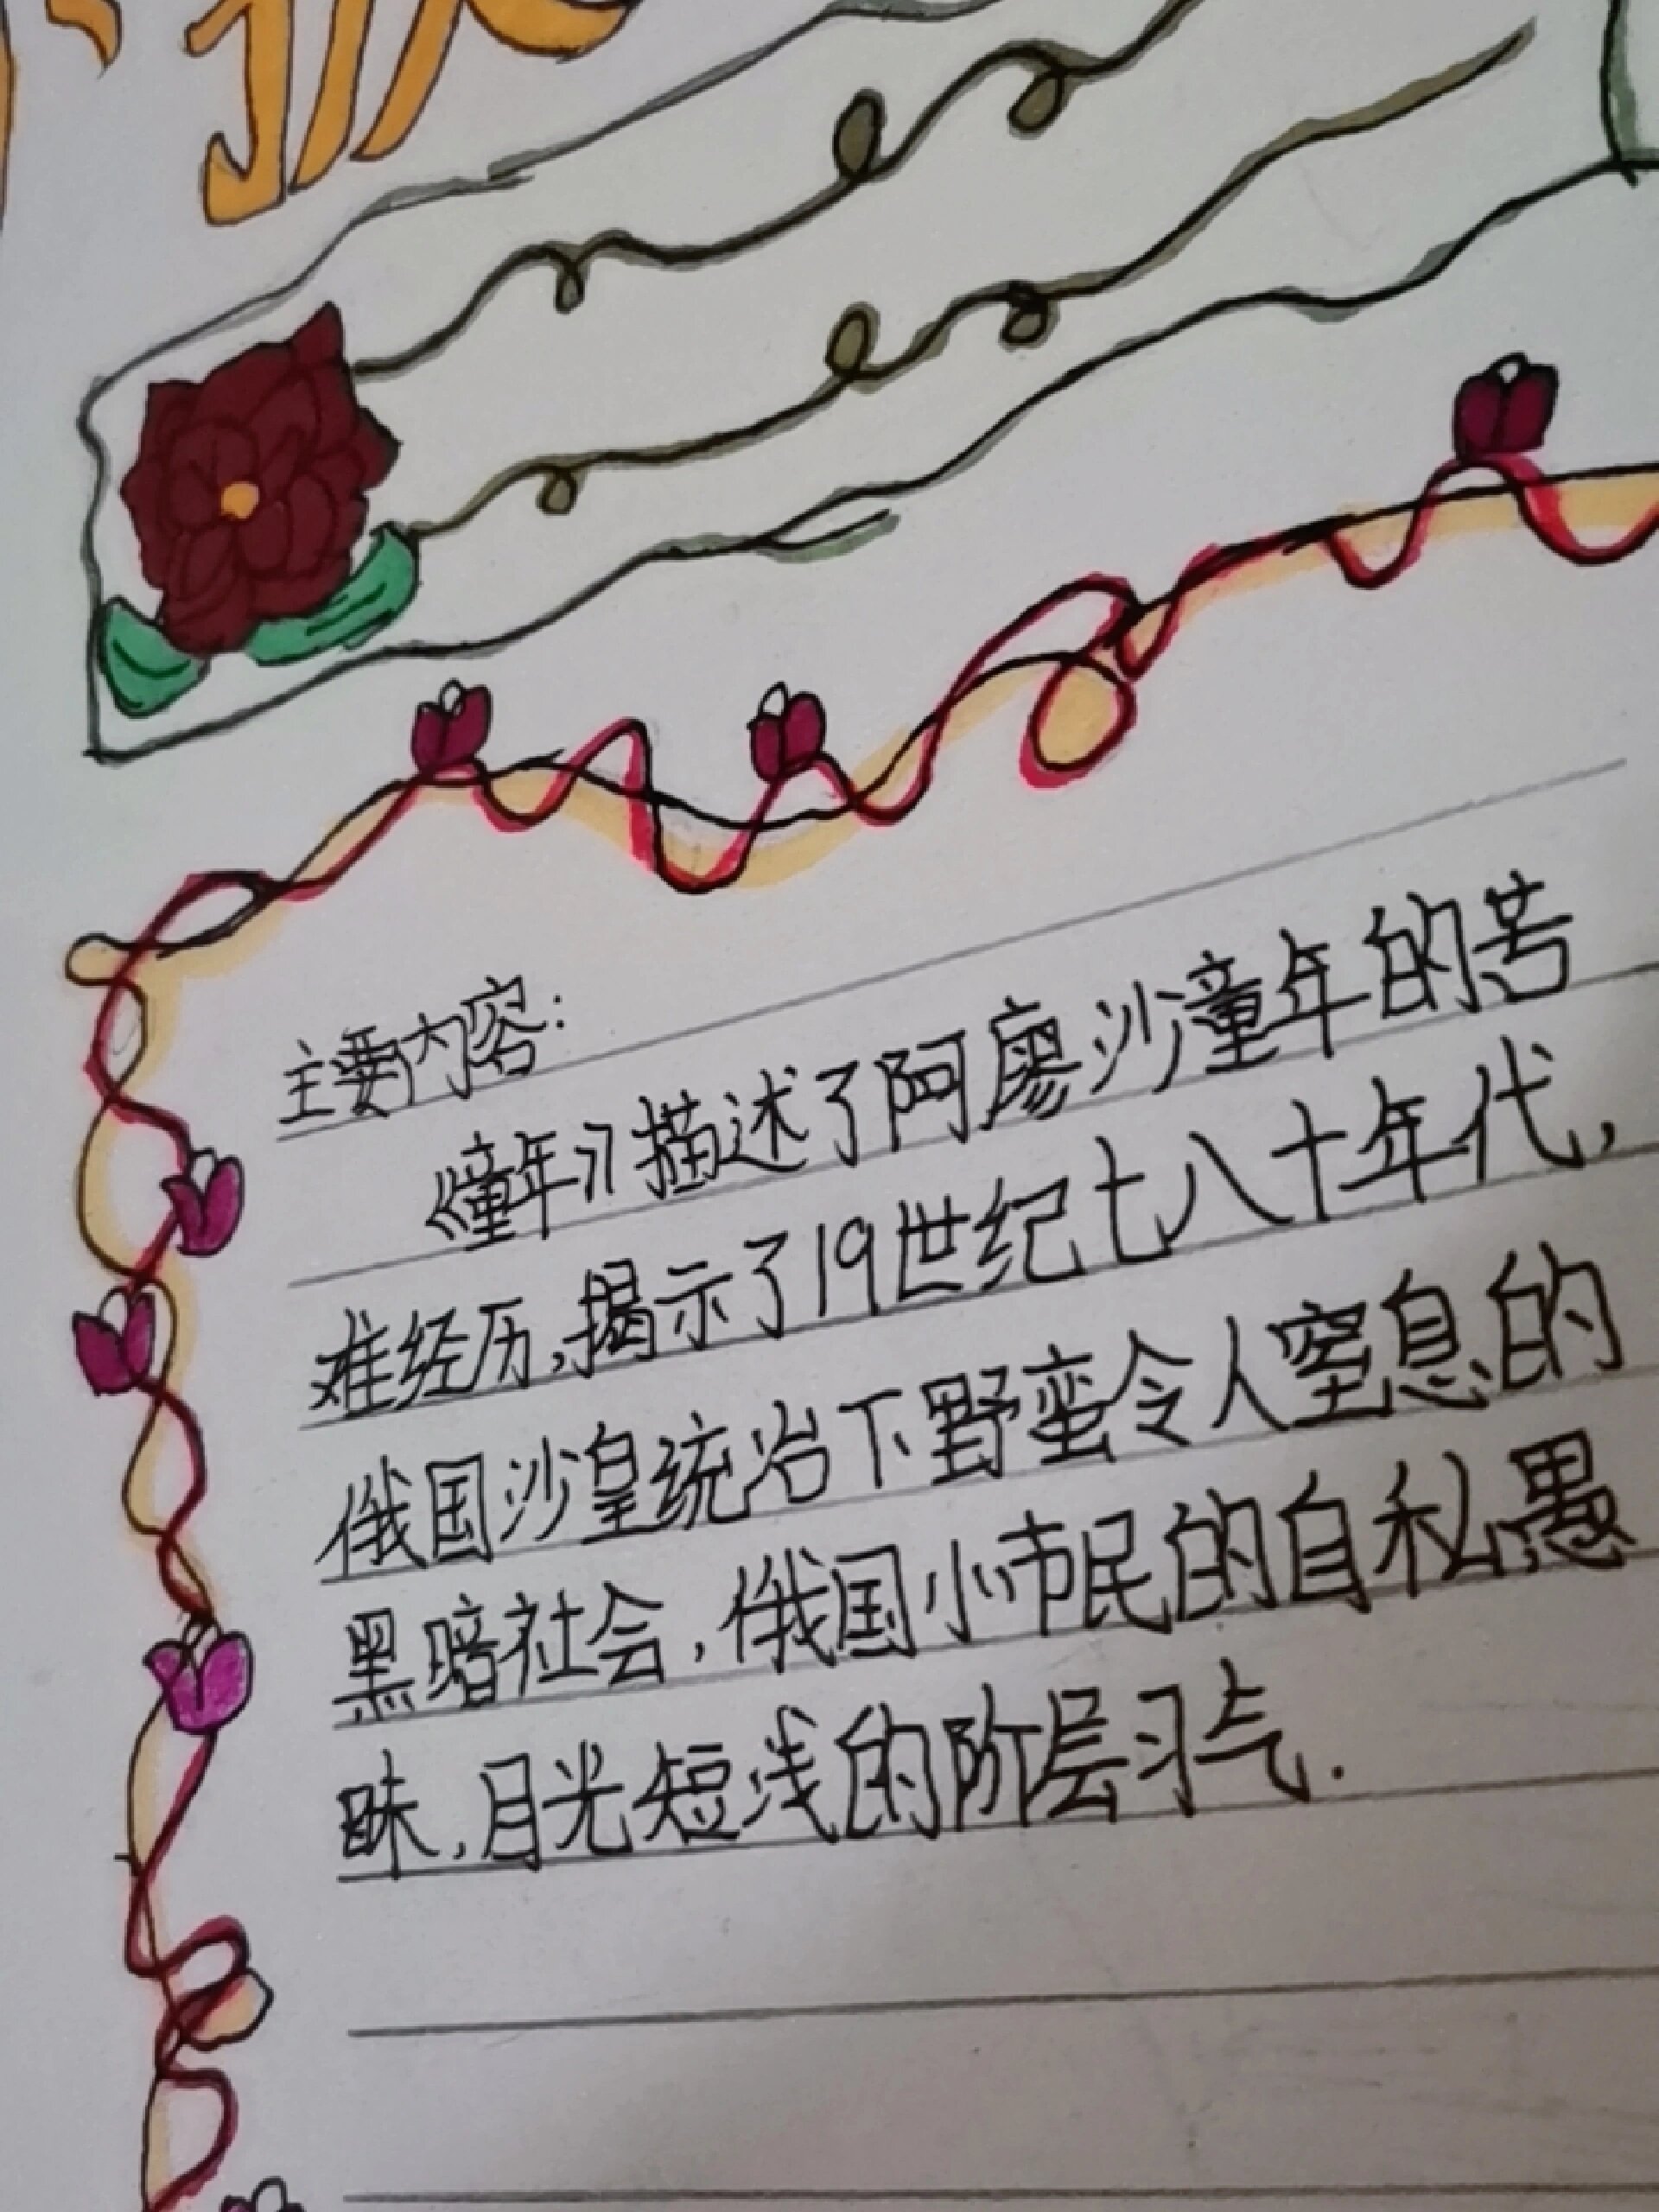 主要内容:
《童年》描述了阿廖沙童年的苦
难经历,揭示了19世纪七八十年代,
俄国沙皇统治下野蛮令人窒息的
黑暗社会,俄国小市民的自私愚
昧,目光短浅的阶层习气.